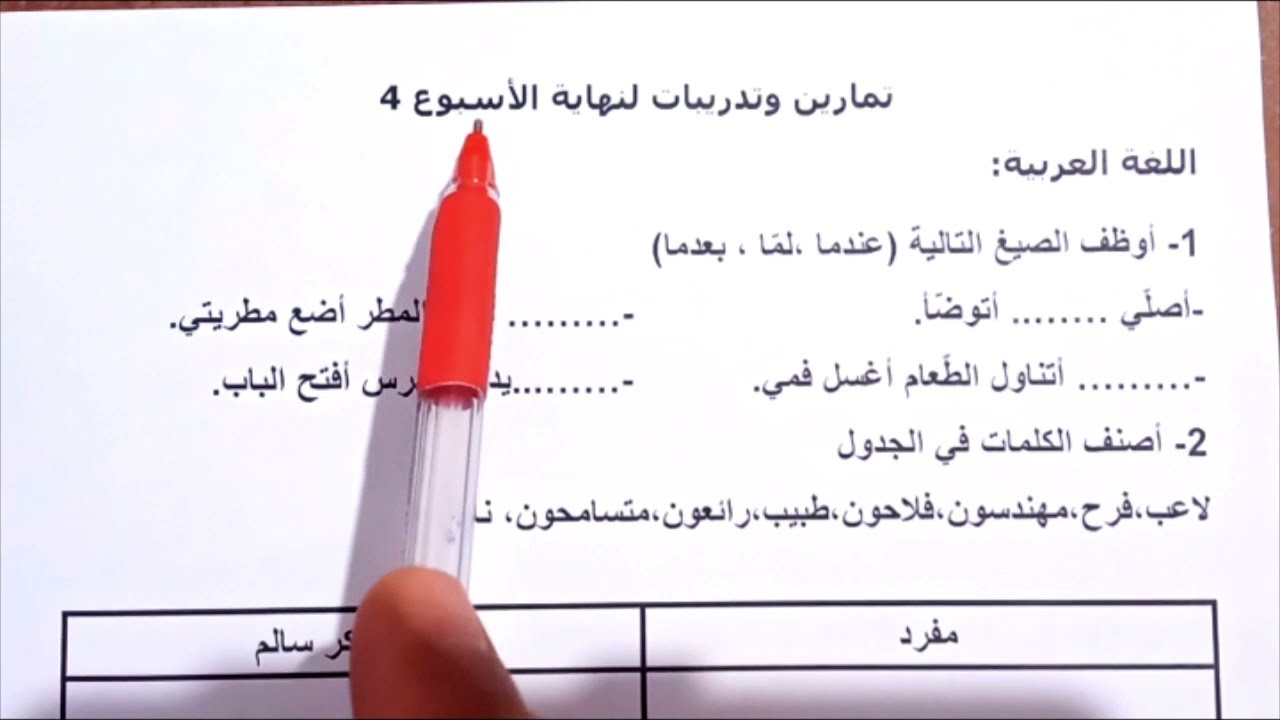 تمارين وتدريبات لنهاية الأسبوع 4
اللغة العربية:
1- أوظف الصيغ التالية (عندما ،لمّا ، بعدما)
-أصلّي ........ أتوضّأ. -......... المطر أضع مطريتي.
-......... أتناول الطّعام أغسل فمي. -......... أفتح الباب.
2- أصنف الكلمات في الجدول
لاعب،فرح،مهندسون،فلاحون،طبيب،رائعون،متسامحون،
مفرد سالم